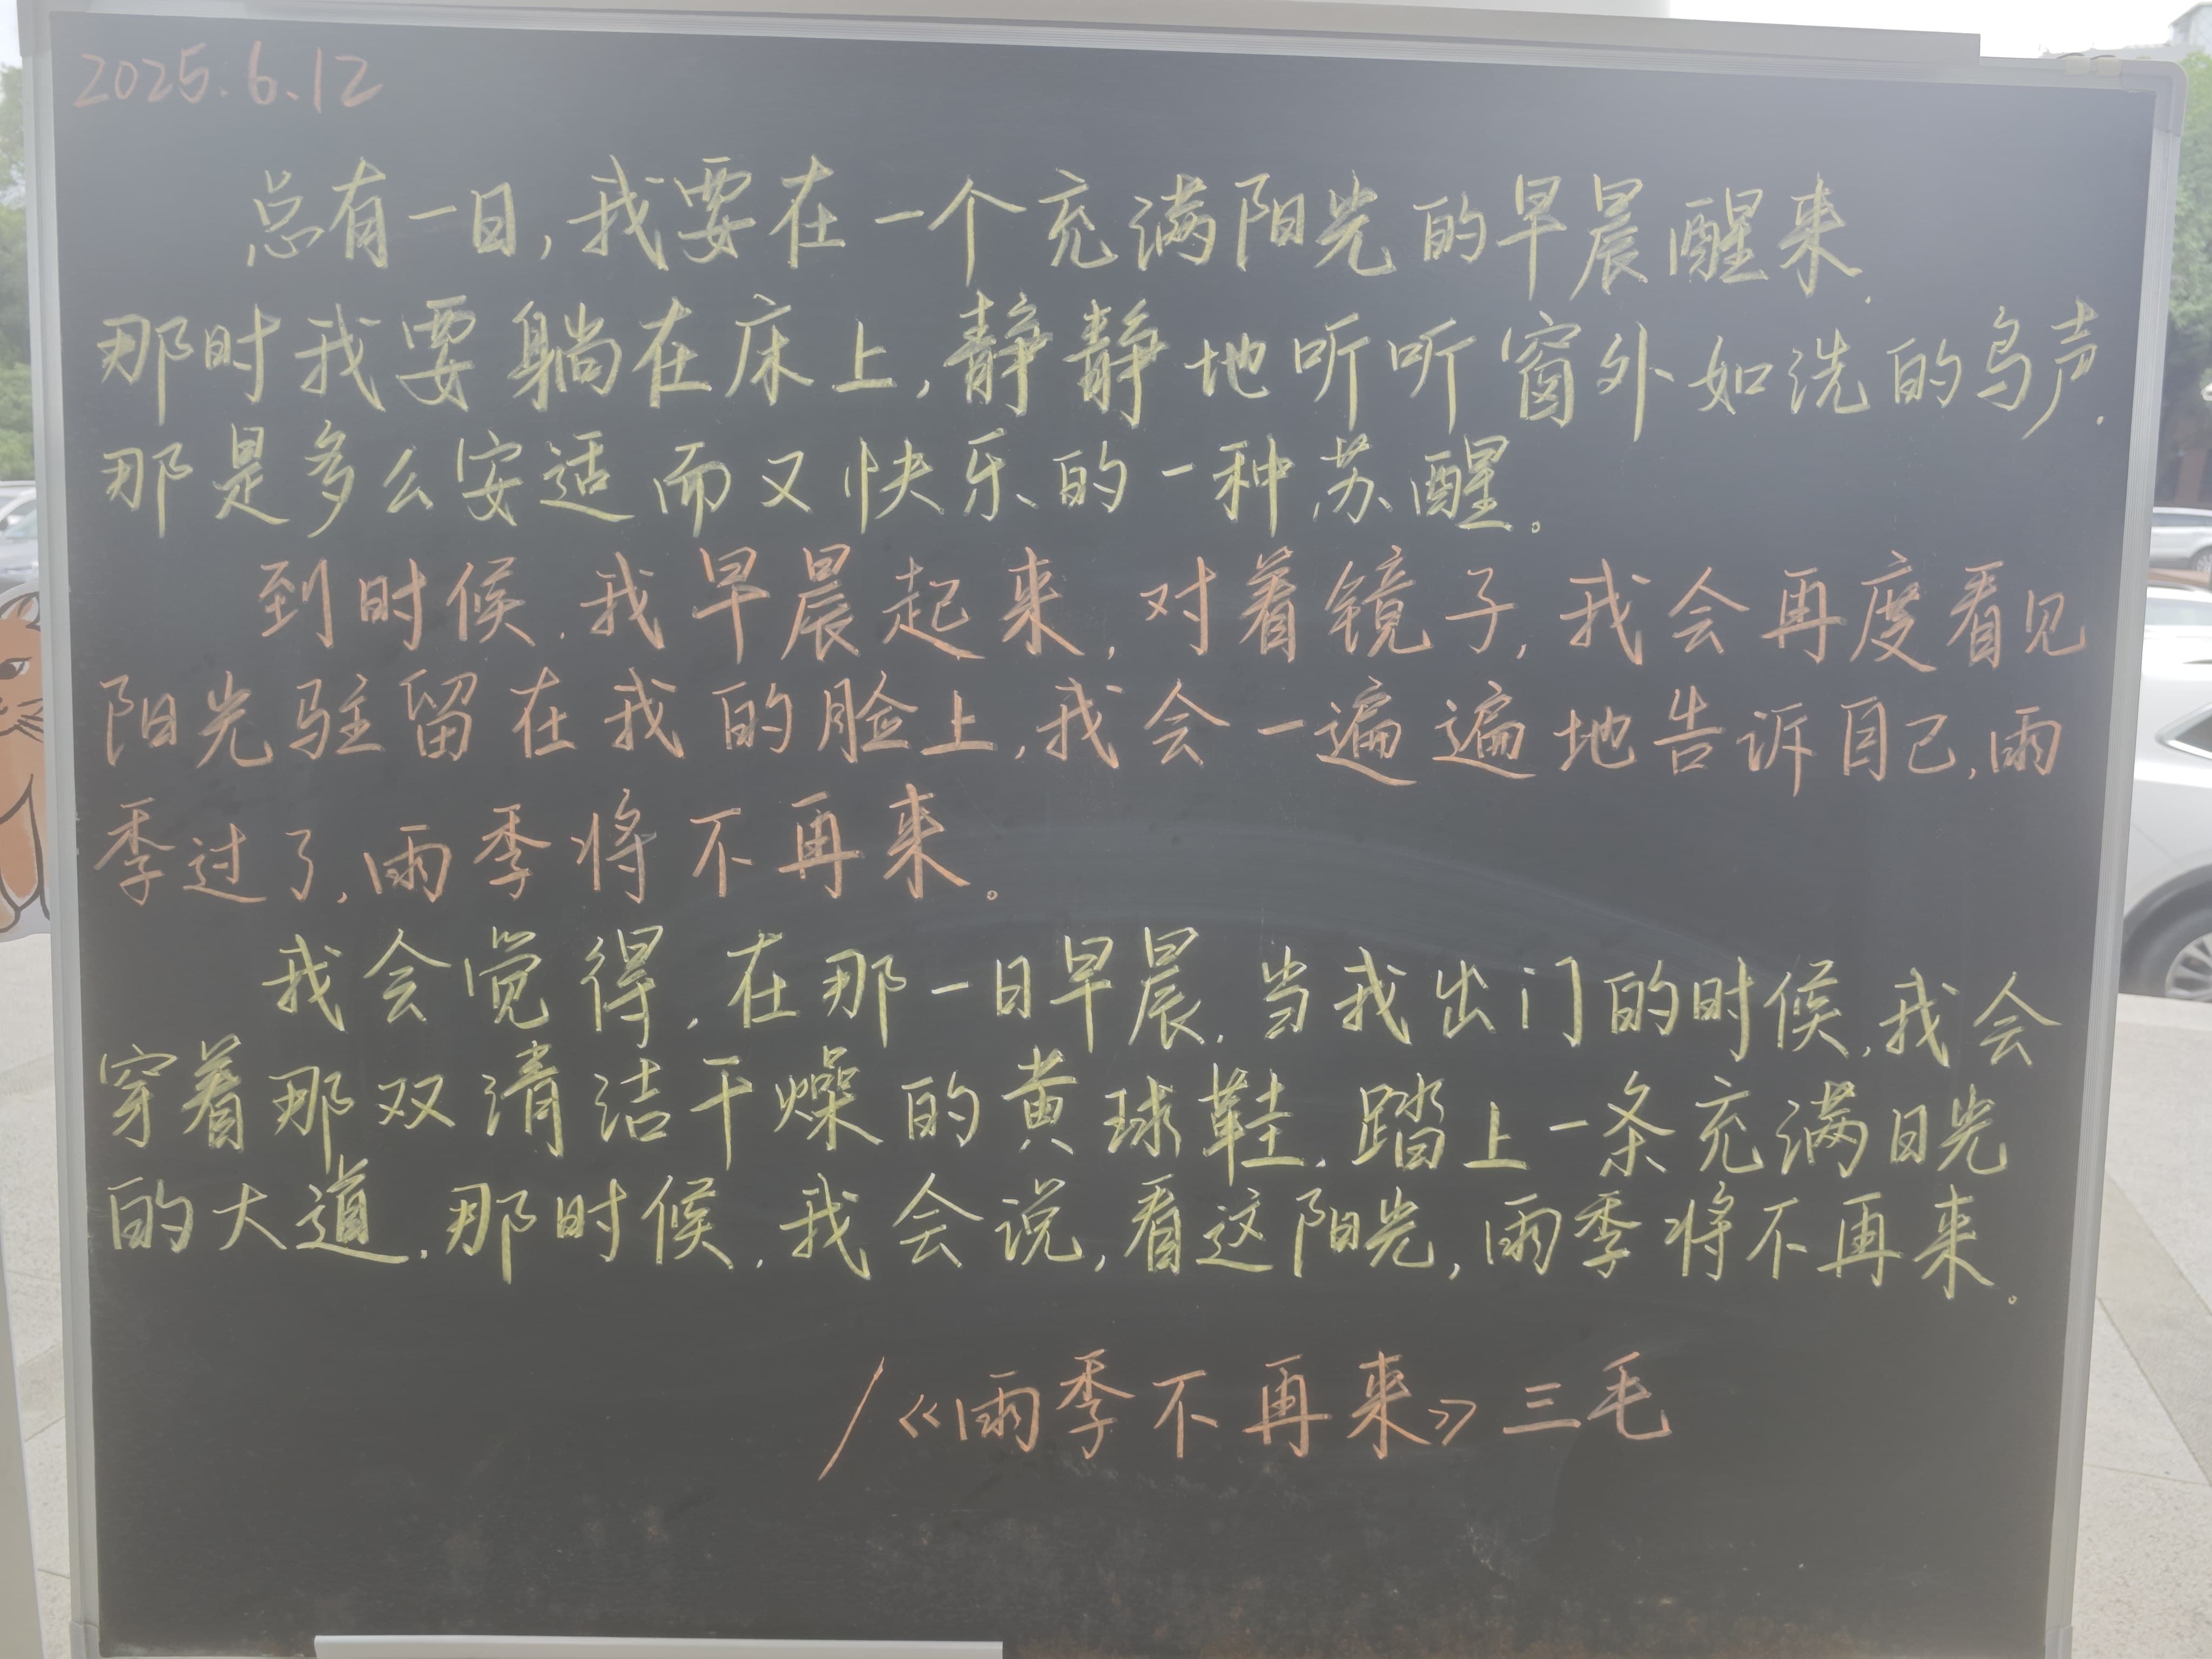 2025.6.12
总有一日,我要在一个充满阳光的早晨醒来.
那时我要躺在床上,静静地听听窗外如洗的鸟声.
那是多么安适而又快乐的一种苏醒。
到时候,我早晨起来,对着镜子,我会再度看见
阳光驻留在我的脸上,我会一遍遍地告诉自己,雨
季过了,雨季将不再来。
我会觉得,在那一日早晨,当我出门的时候,我会
穿着那双清洁干燥的黄球鞋,踏上一条充满日光
的大道,那时候,我会说,看这阳光,雨季将不再来。
/《雨季不再来》三毛